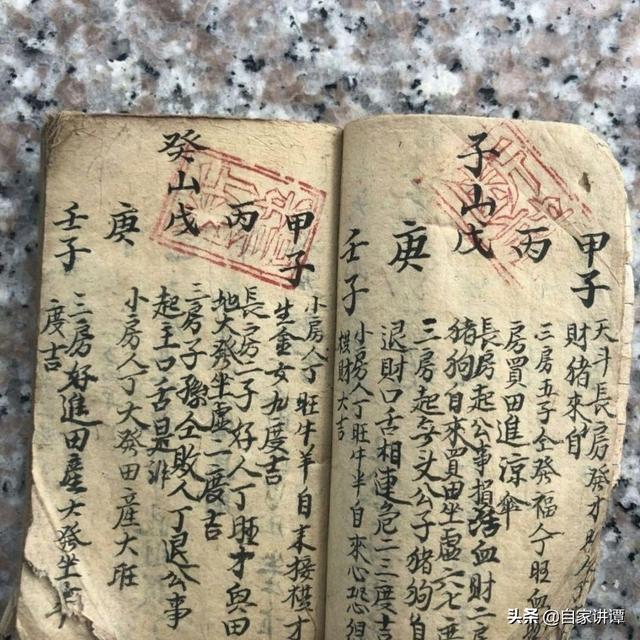 子山
甲子
丙
戊
庚
壬子
天斗長房發才
財猪來自
三房五子全發福人丁旺血
房買田進涼傘
長房起公事損血財二房
猪狗自來買田坐虛六七度
三房起無头公子猪狗自
退財口舌相連危一二三度吉
小房人丁旺牛羊自來心恐但
棋財大吉
癸山
甲子
丙
戊
庚
壬子
小房人丁旺牛羊自來接横才
生金女九度吉
長房一子好人丁旺才興田
地大發坐虛一度吉
二房子孫仝敗人丁退公事
起主口舌是非
小房人丁大發田産大旺
三房好進田産大發坐
度吉
头条 @自家讲谭